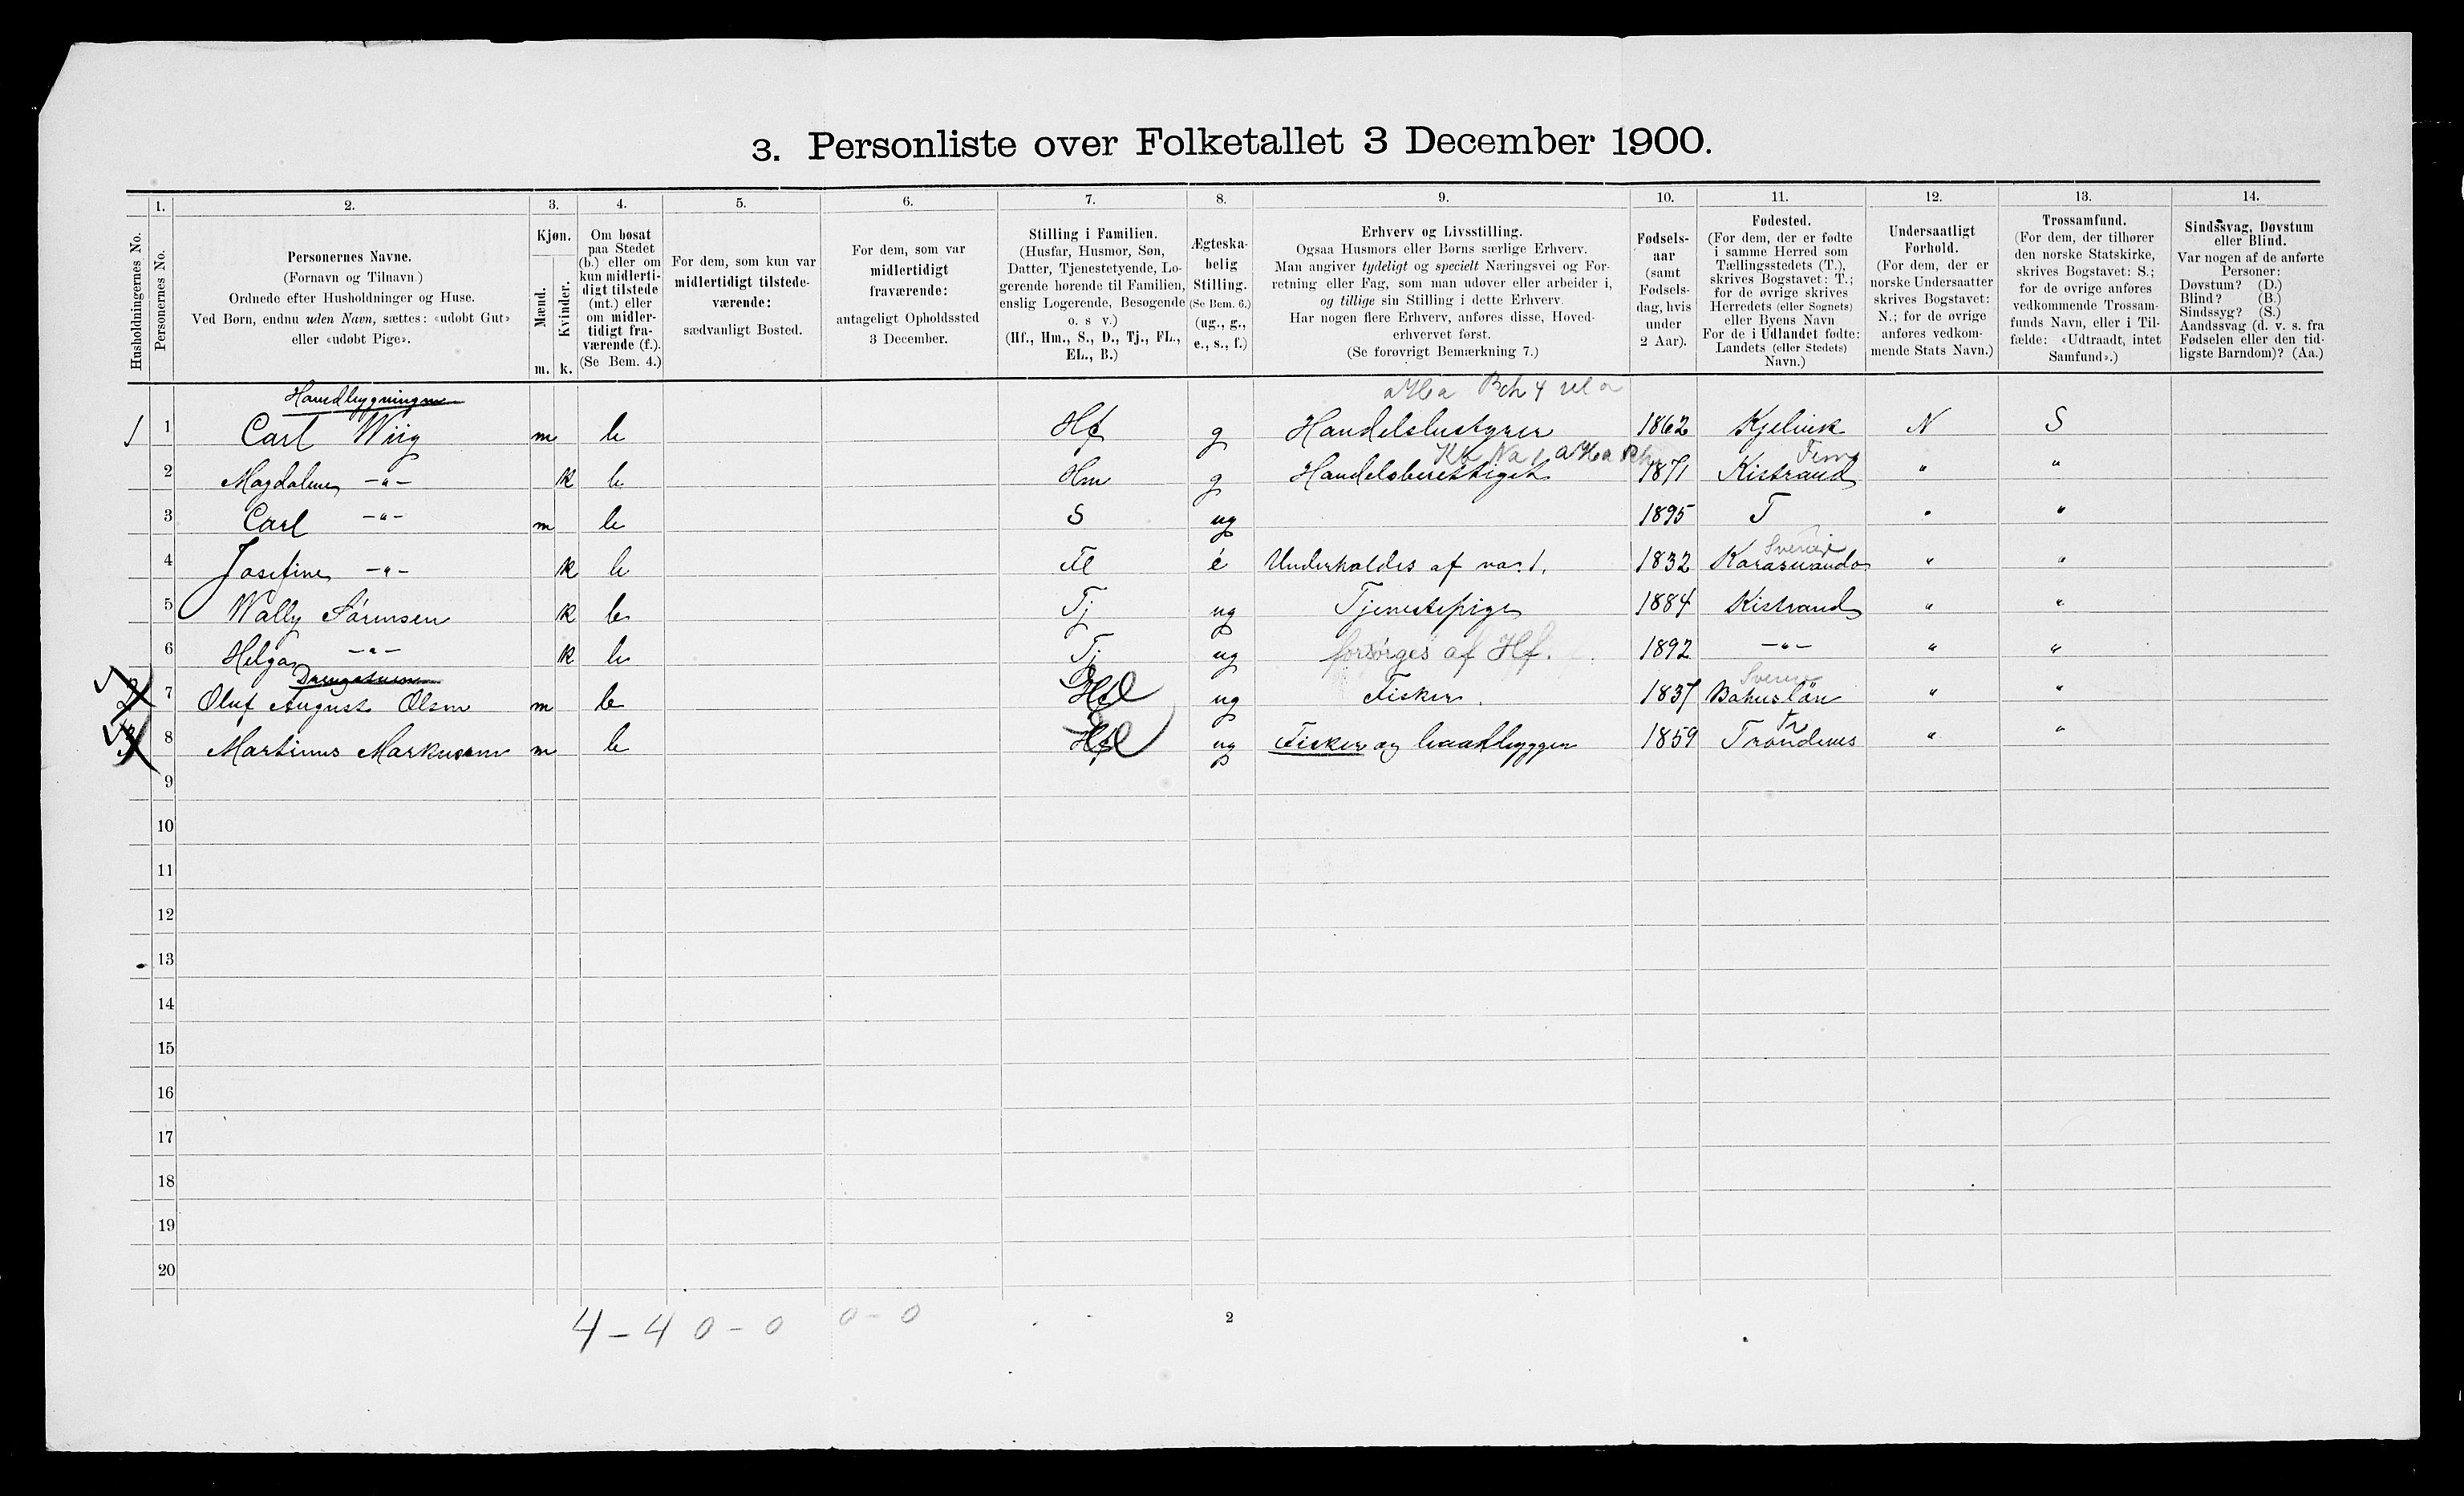 3. Personliste over Folketallet 3 December 1900.
1. 2. 3. 4. 5. 6. 7. 8. 9. 10. 11. 12. 13. 14.
Husholdningernes No.
Personernes No.
Personernes Navne.
(Fornavn og Tilnavn.)
Ordnede efter Husholdninger og Huse.
Ved Børn, endnu uden Navn, sættes: «udøbt Gut»
eller «udøbt Pige».
Kjøn.
Mænd.
Kvinder.
m. k.
Om bosat
paa Stedet
(b.) eller om
kun midlerti-
digt tilstede
(mt.) eller
om midler-
tidigt fra-
værende (f.).
(Se Bem. 4.)
For dem, som kun var
midlertidigt tilstede-
værende:
sædvanligt Bosted.
For dem, som var
midlertidigt
fraværende:
antageligt Opholdssted
3 December.
Stilling i Familien.
(Husfar, Husmor, Søn,
Datter, Tjenestetyende, Lo-
gerende hørende til Familien,
enslig Logerende, Besøgende
o. s v.)
(Hf., Hm., S., D., Tj., FL.,
EL., B.)
Ægteska-
belig
Stilling.
(Se Bem. 6.)
(ug., g.,
e., s., f.)
Erhverv og Livsstilling.
Ogsaa Husmors eller Børns særlige Erhverv.
Man angiver tydeligt og specielt Næringsvei og For-
retning eller Fag, som man udøver eller arbeider i,
og tillige sin Stilling i dette Erhverv.
Har nogen flere Erhverv, anføres disse, Hoved-
erhvervet først.
(Se forøvrigt Bemærkning 7.)
Fødsels-
aar
(samt
Fødsels-
dag, hvis
under
2 Aar).
Fødested.
(For dem, der er fødte
i samme Herred som
Tællingsstedets (T.),
skrives Bogstavet: T.;
for de øvrige skrives
Herredets (eller Sognets)
eller Byens Navn
For de i Udlandet fødte:
Landets (eller Stedets)
Navn.)
Undersaatligt
Forhold.
(For dem, der er
norske Undersaatter
skrives Bogstavet:
N.; for de øvrige
anføres vedkom-
mende Stats Navn.)
Trossamfund.
(For dem, der tilhører
den norske Statskirke,
skrives Bogstavet: S.;
for de øvrige anføres
vedkommende Trossam-
funds Navn, eller i Til-
fælde: «Udtraadt, intet
Samfund».)
Sindssvag, Døvstum
eller Blind.
Var nogen af de anførte
Personer:
Døvstum? (D.)
Blind? (B.)
Sindssyg? (S.)
Aandssvag (d. v. s. fra
Fødselen eller den tid-
ligste Barndom)? (Aa.)
1 1 Carl Wiig m b Hf g Handelsbestyrer 1862 Kjelvik N S
Finm
2 Magdalene -"- k b Hm g Handelsberettiget 1871 Kistrand " "
3 Carl -"- m b S ug 1895 T " "
Sverige
4 Josefine -"- k b Fl e Underholdes af no. 1. 1832 Karasuando " "
5 Wally Sørensen k b Tj ug Tjenestepige 1884 Kistrand " "
6 Helga -"- k b Tj ug forsørges af Hf. 1892 -"- " "
Drengestuen
Sverige
7 Oluf August Olsen m b ug Fisker. 1837 Bahuslän " "
Tr
8 Martinus Markussen m b ug Fisker og baadbygger 1859 Trondenes " "
9
10
11
12
13
14
15
16
17
18
19
20
4 - 4 0 - 0 0 - 0
2